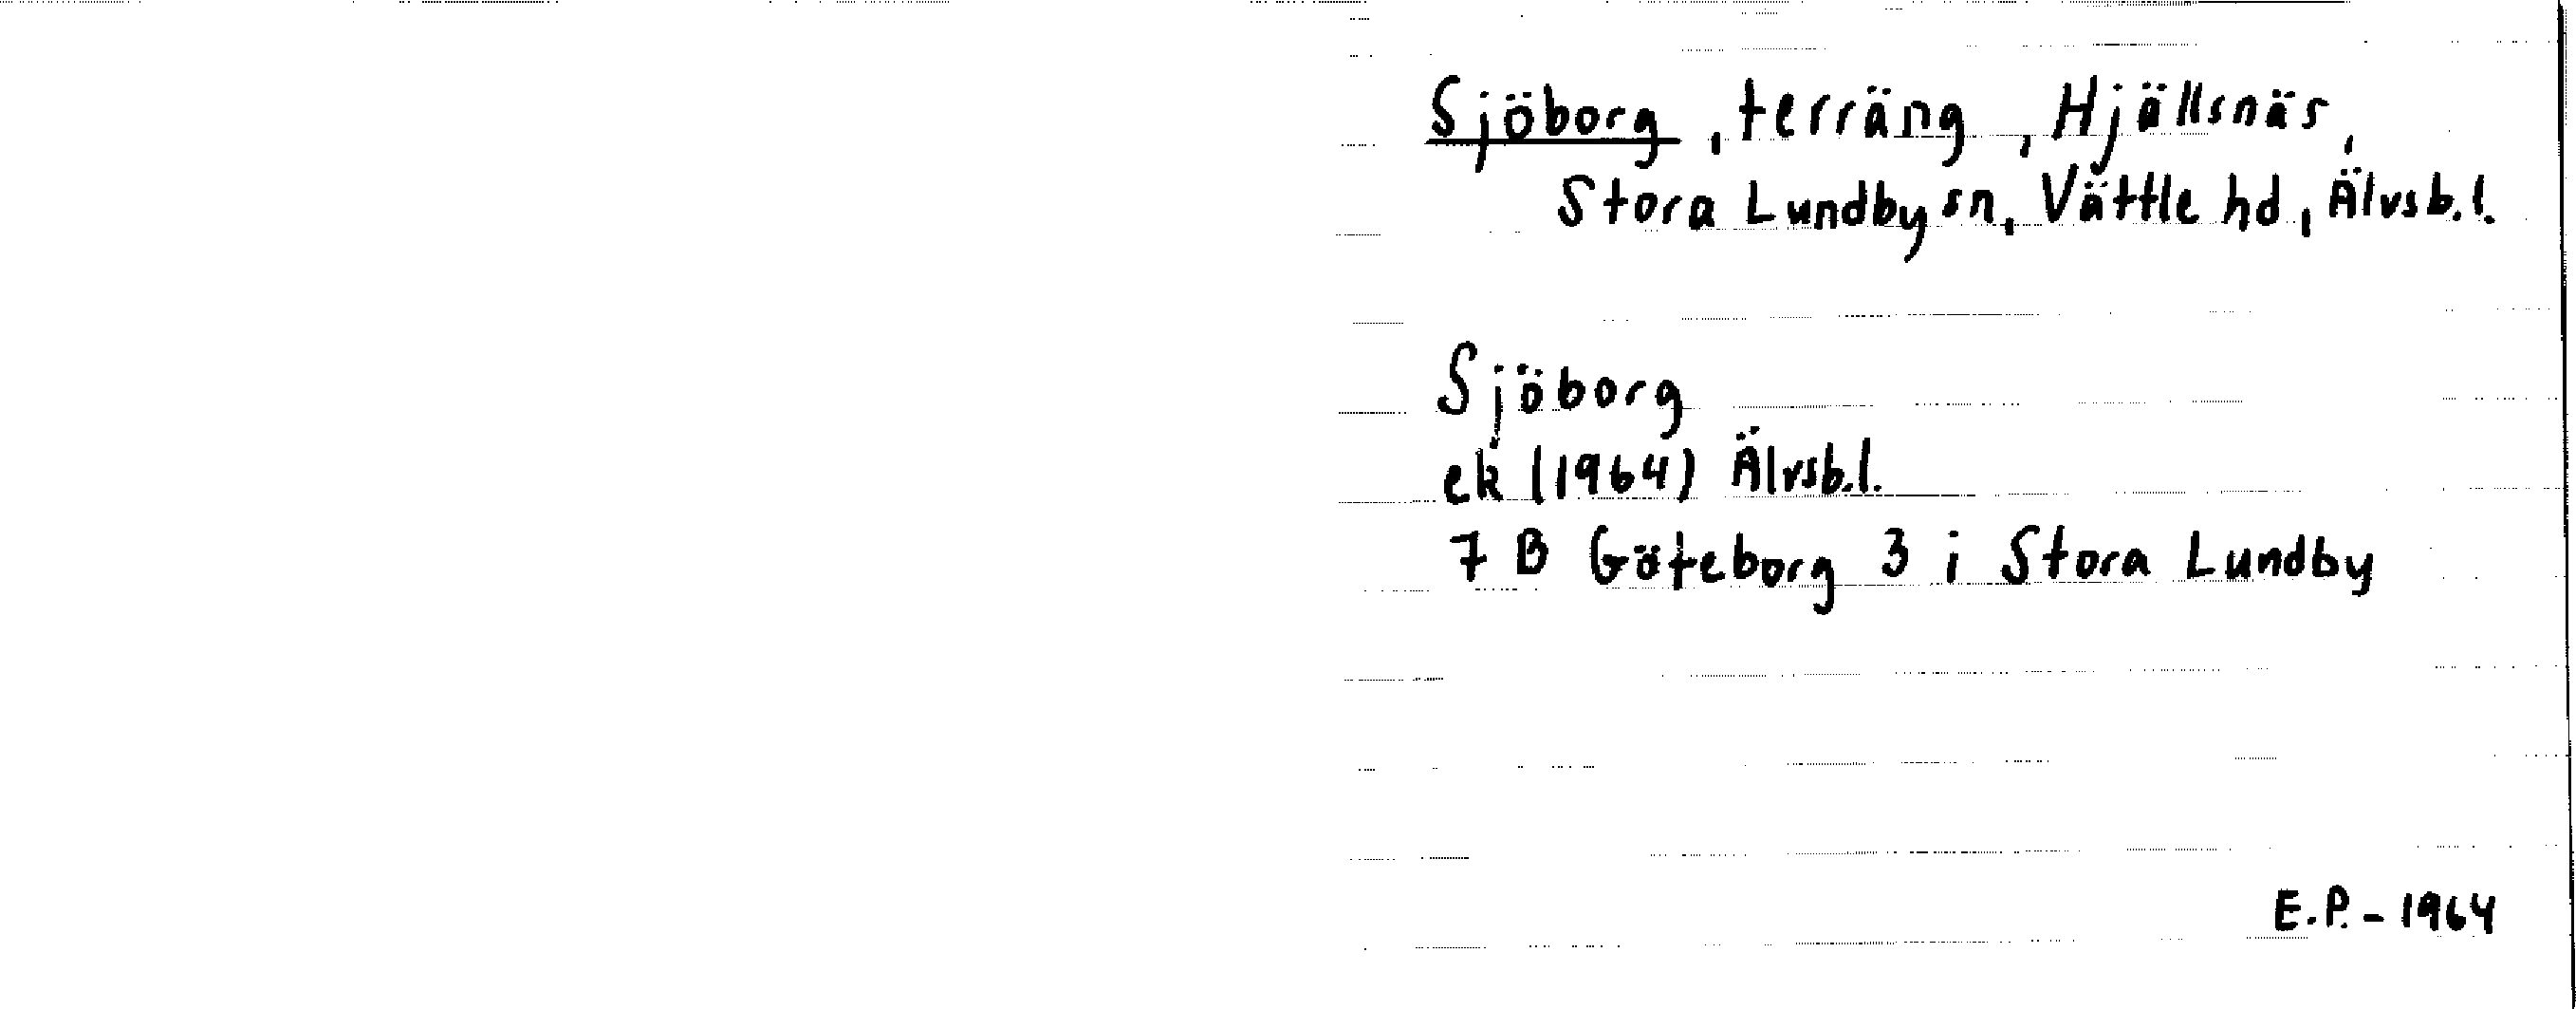 Sjöborg, terräng, Hjällsnäs,
Stora Lundby sn, Vättle hd, Älvsb.l.
Sjöborg
ek (1964) Älvsb.l.
7 B Göteborg 3 i Stora Lundby
E.P. - 1964